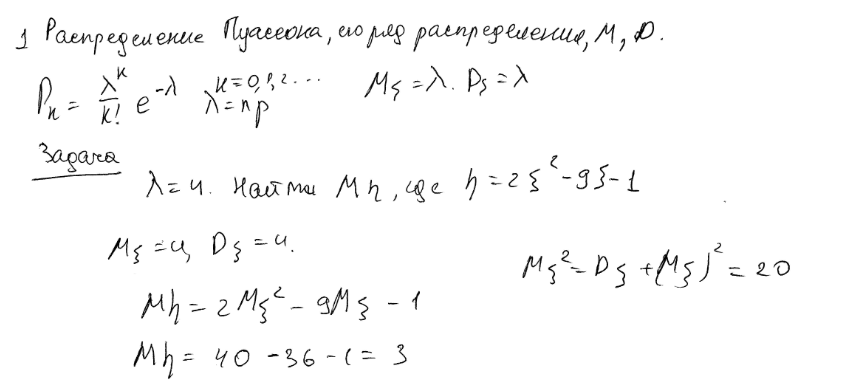 1 Распределение Пуассона, его ряд распределения, М, D.
Pₖ = λᵏ/k! e^(-λ) k=0,1,2... λ=np Mξ=λ. Dξ=λ
Задача
λ=4. Найти Mη, где η=2ξ²-9ξ-1
Mξ=4, Dξ=4.
Mξ²=Dξ+(Mξ)²=20
Mη=2Mξ²-9Mξ-1
Mη=40-36-1=3